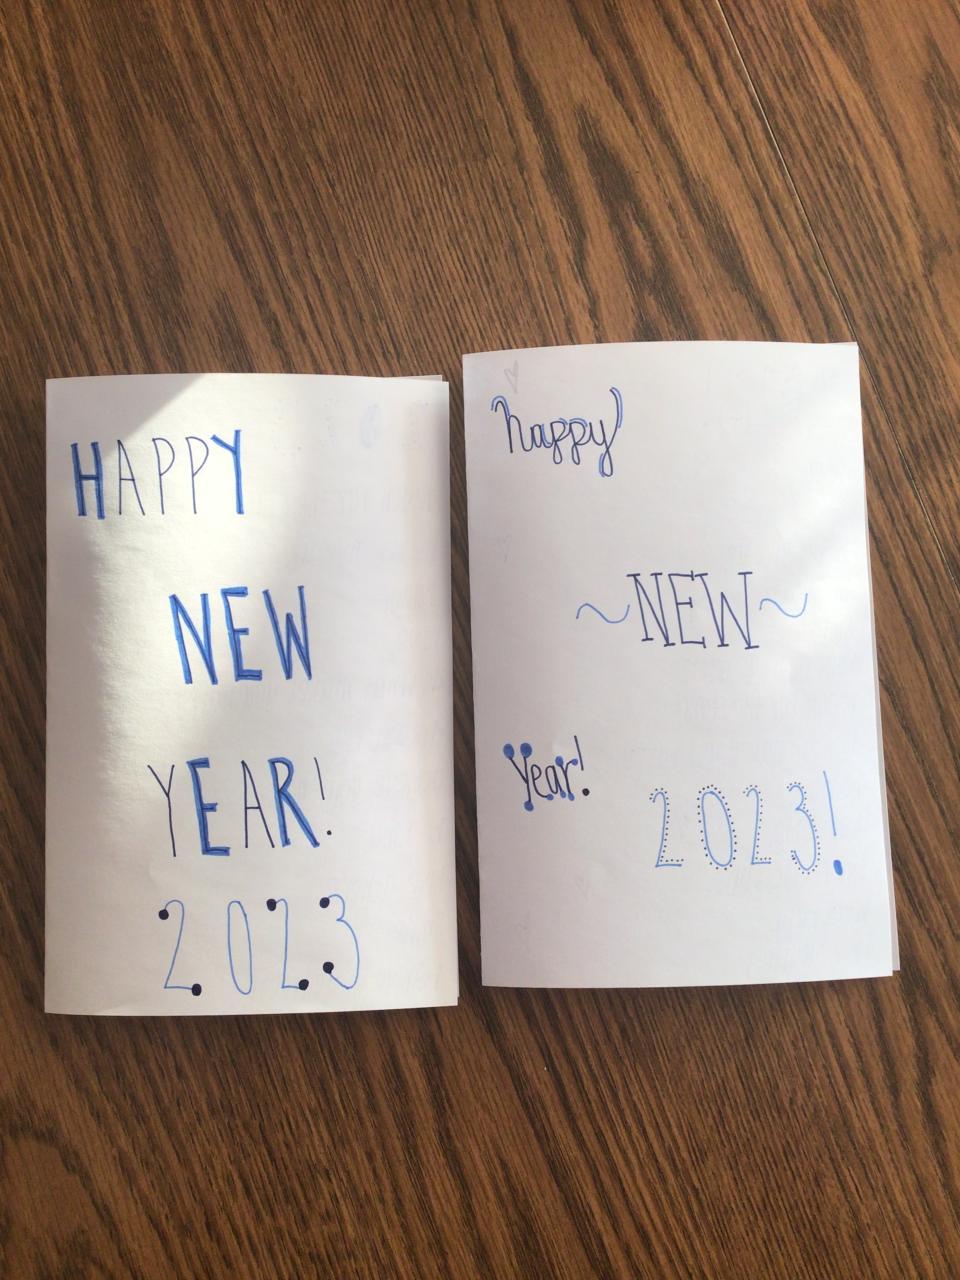 HAPPY
NEW
YEAR!
2023
happy
~NEW~
Year!
2023!